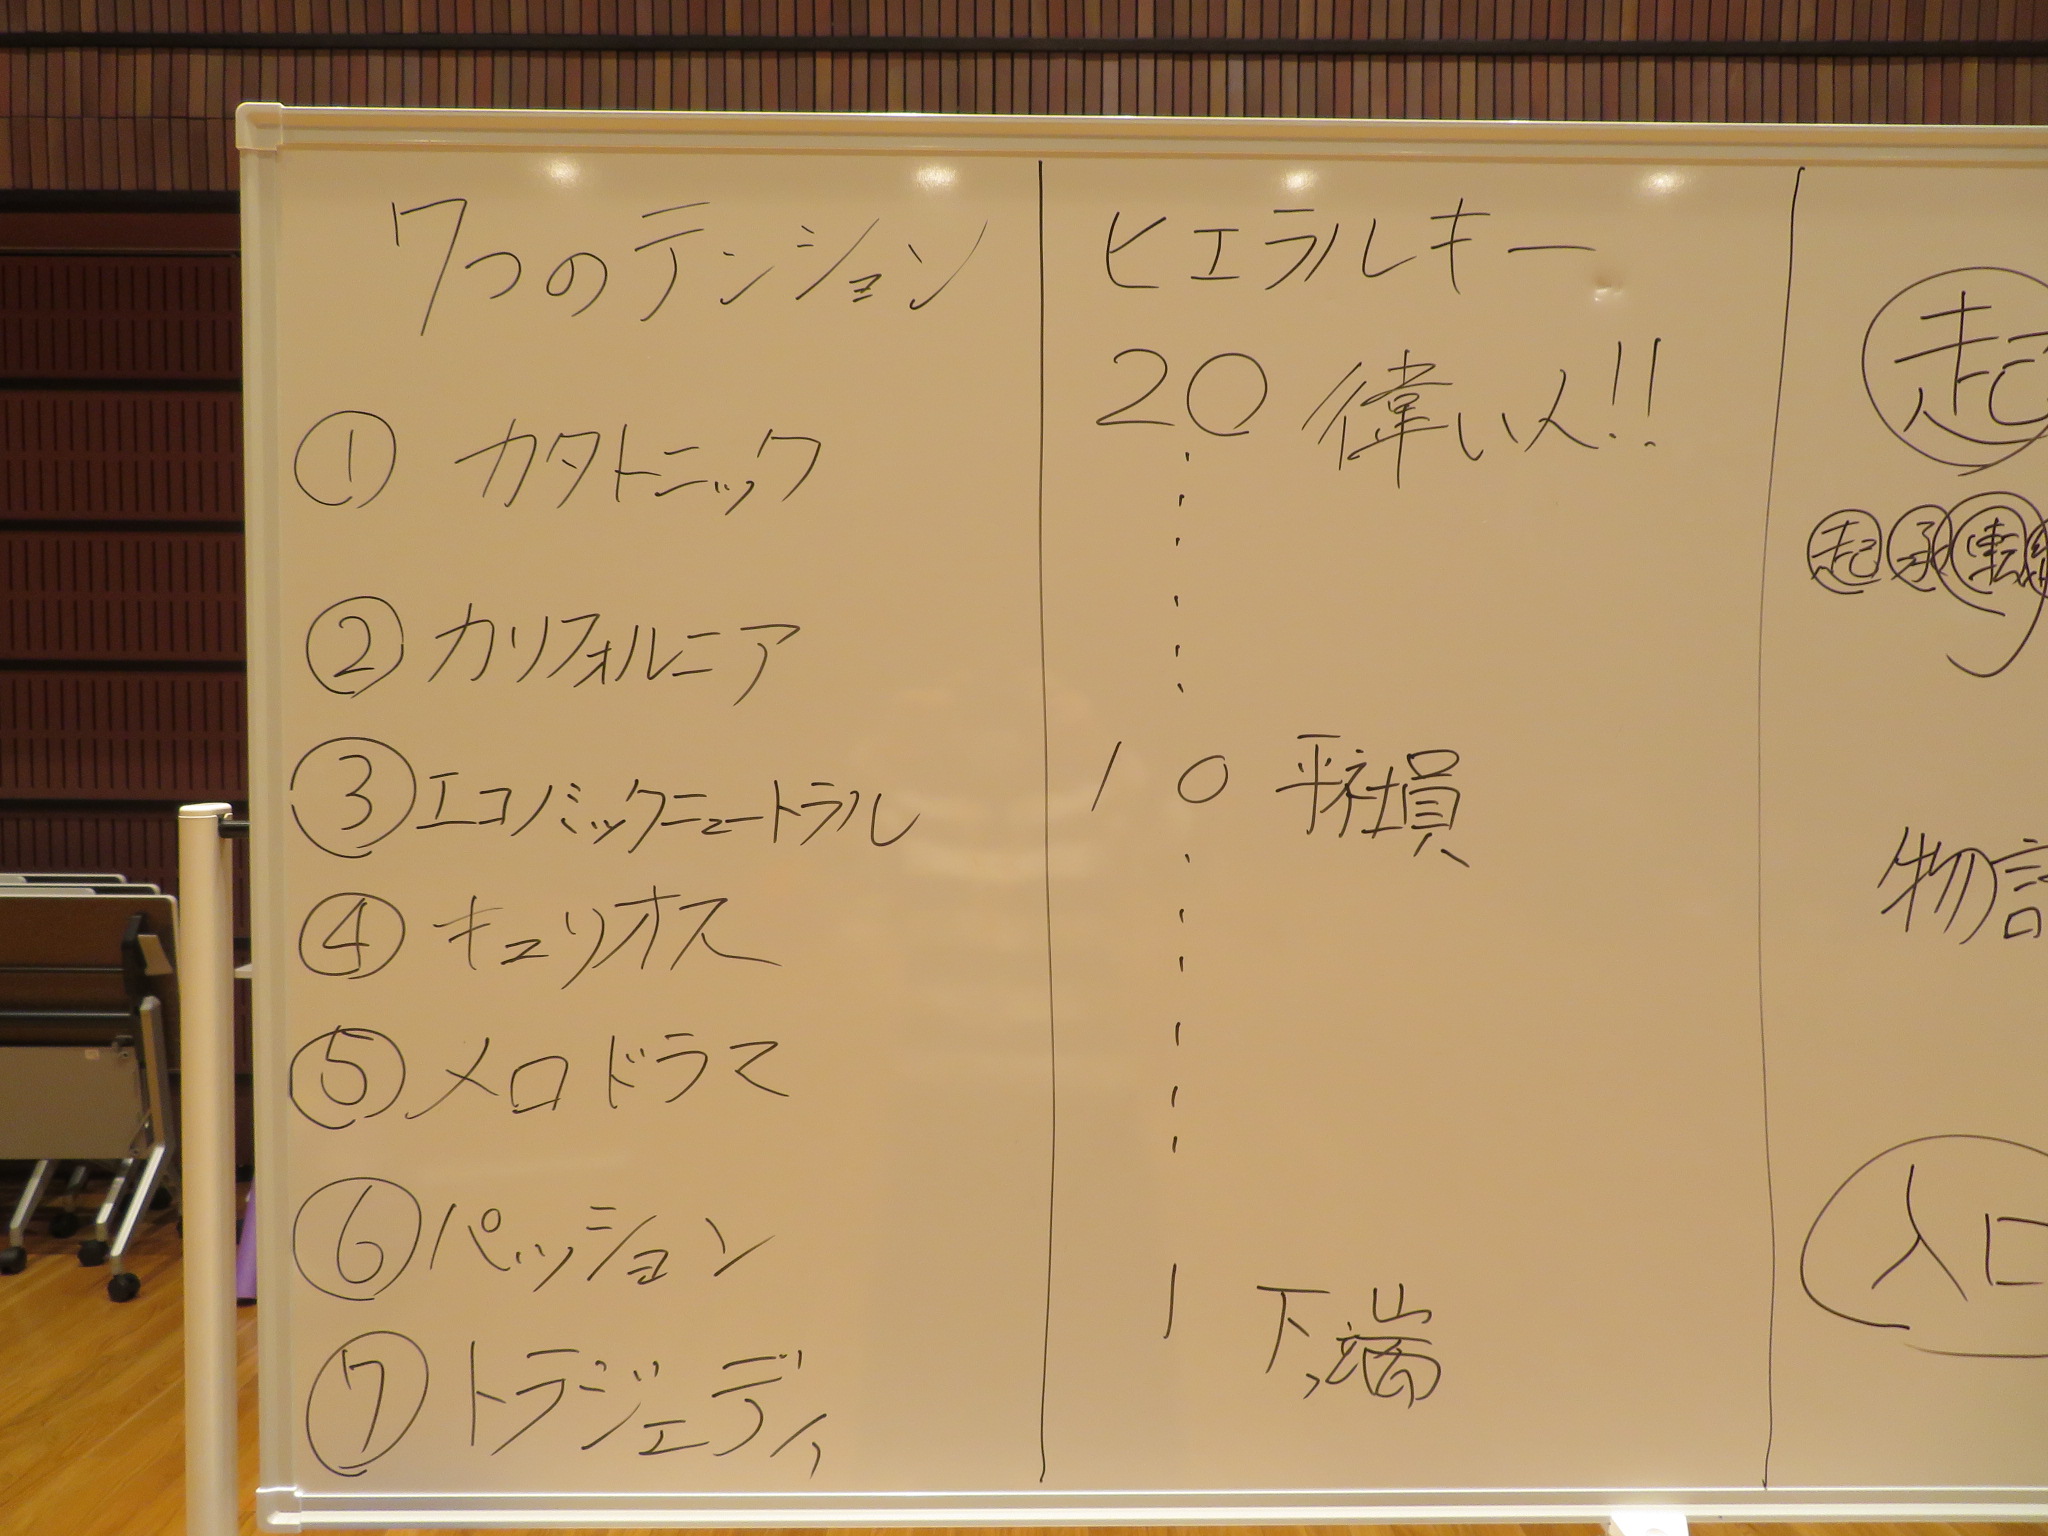 7つのテンション
① カタトニック
② カリフォルニア
③ エコノミックニュートラル
④ キュリオス
⑤ メロドラマ
⑥ パッション
⑦ トラジェディ
ヒエラルキー
20 偉い人!!
10 平社員
1 下っ端
起
起承転
物語
入口